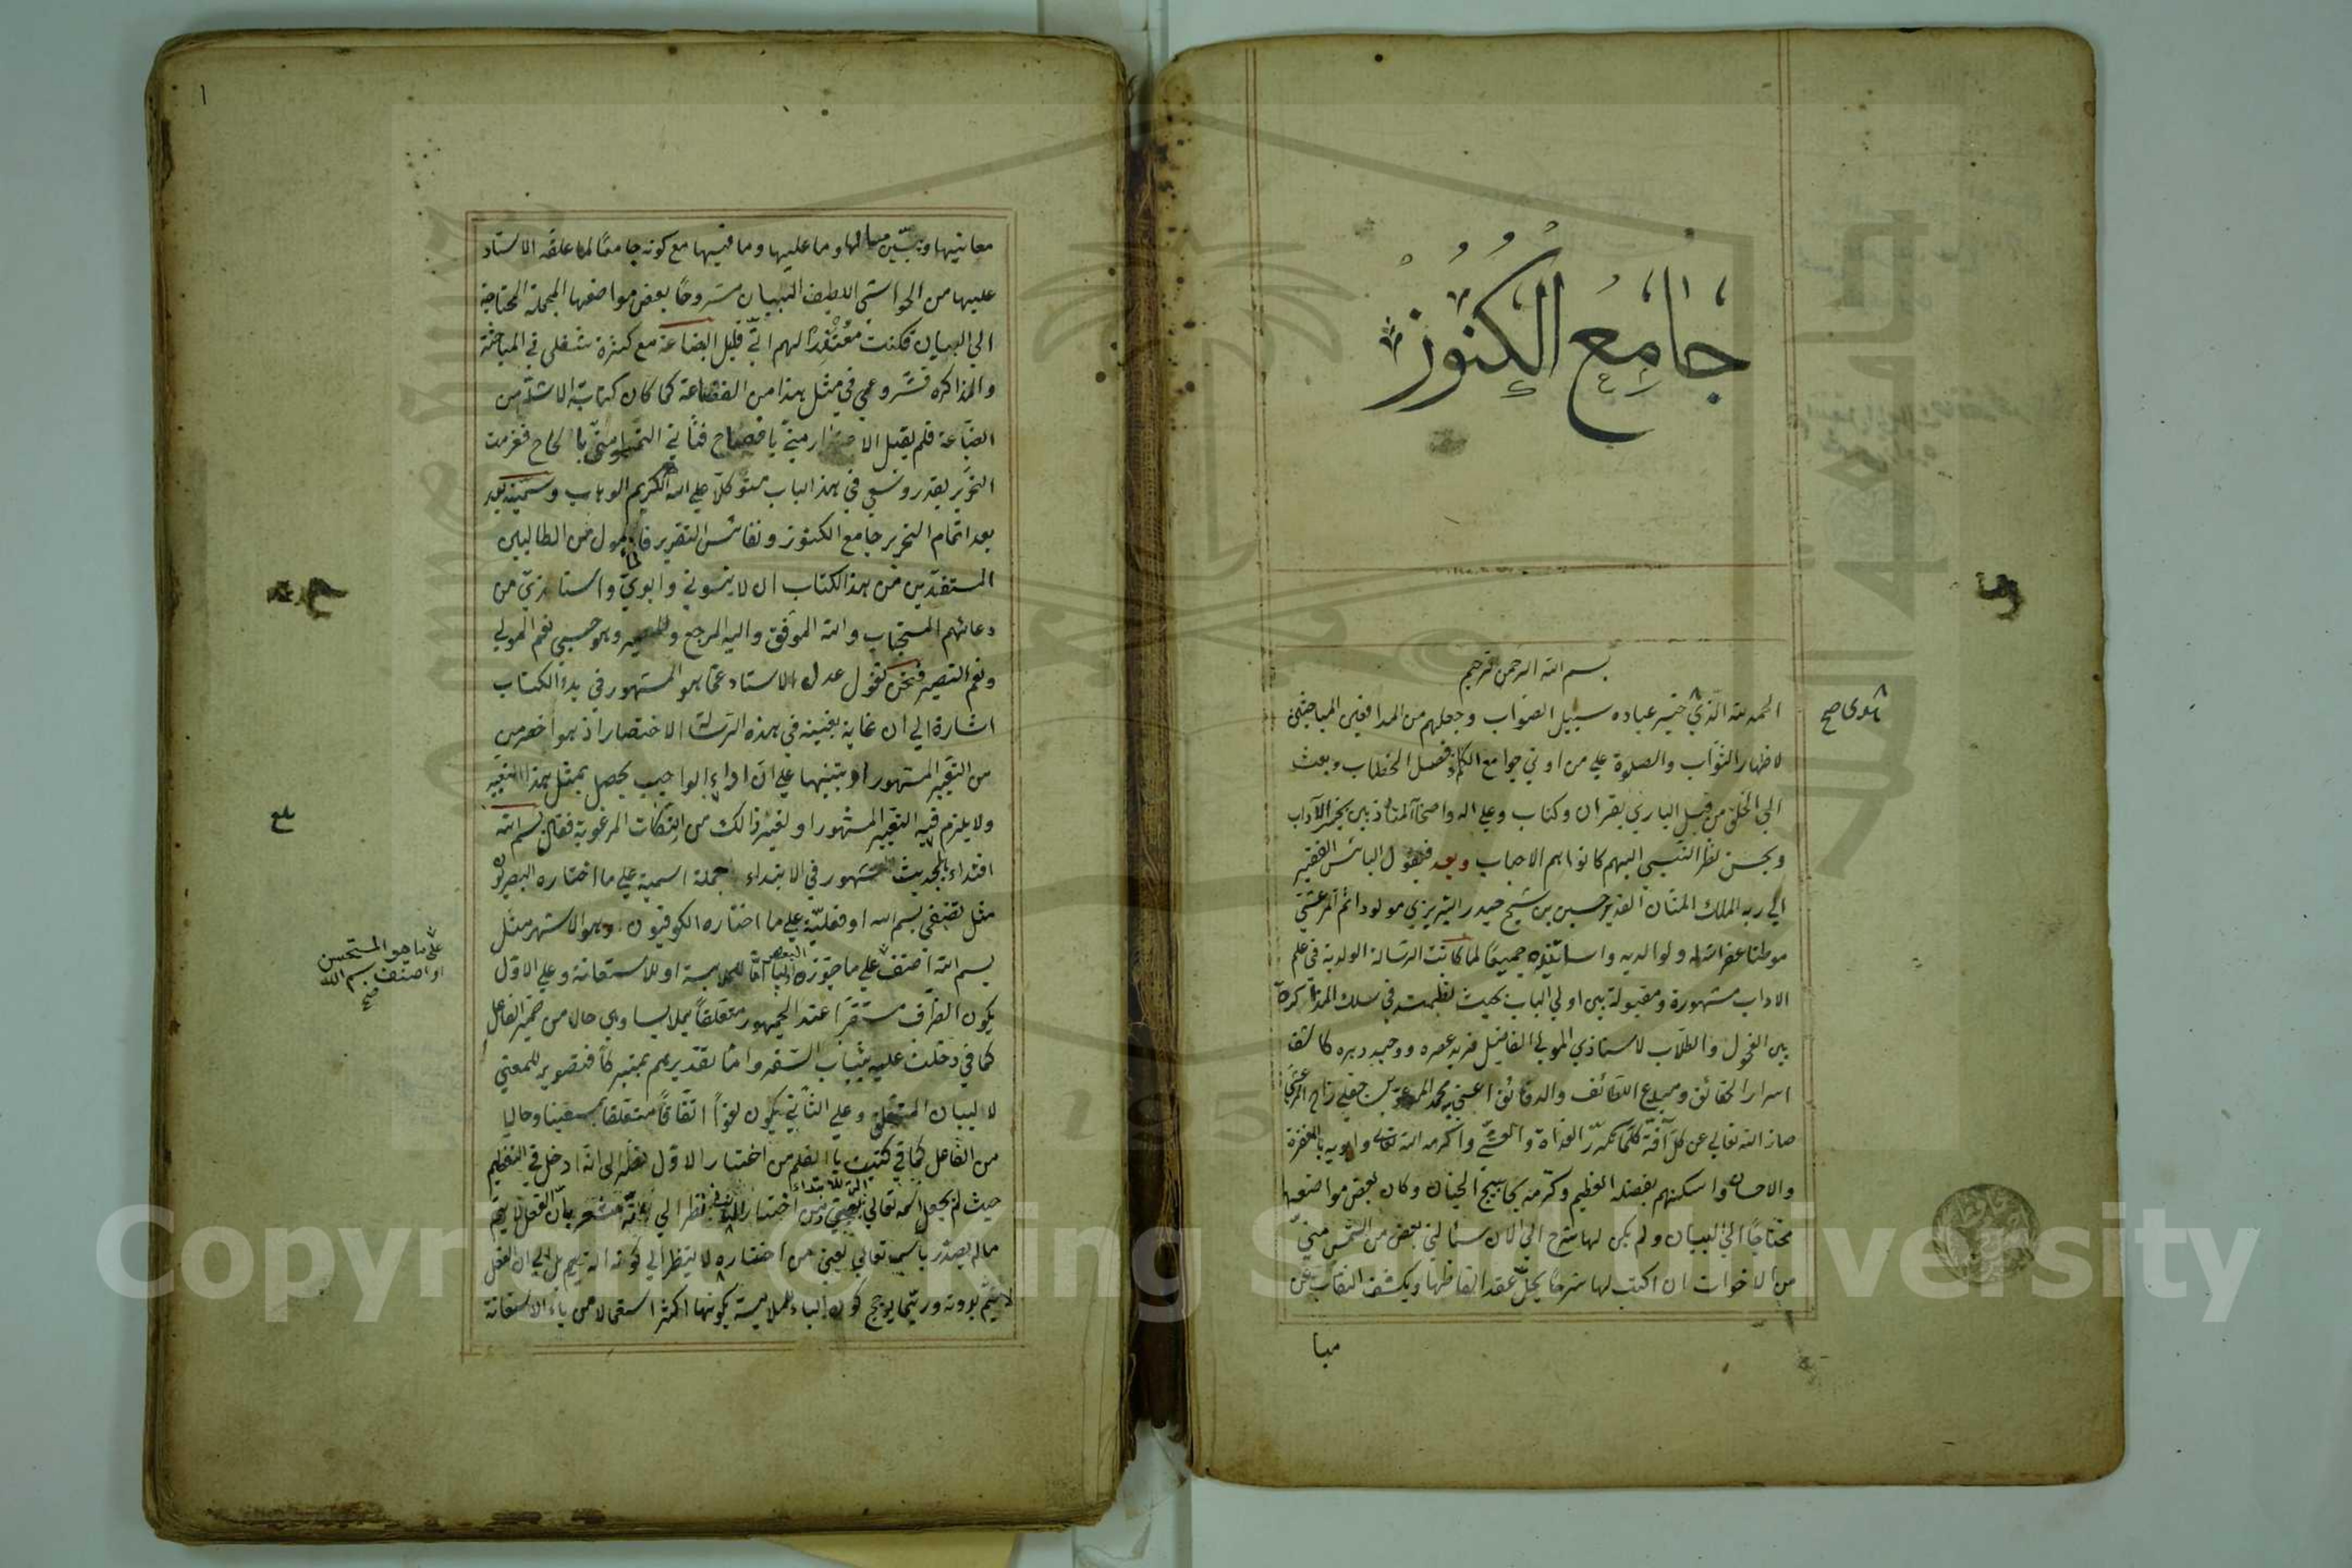 جامع الكنوز
بسم الله الرحمن الرحيم
الحمد لله الذي خير عباده سبيل الصواب وجعلهم من المدافعين المباحثين
لاظهار الثواب والصلوة علي من اوتي جوامع الكلم وفصل الخطاب وبعث
الي الخلق من قبل الباري بقران وكتاب وعلي اله واصحابه المتأدبين بخير الآداب
وبحسن نظر النبي اليهم كانوا هم الاحباب وبعد فيقول البائس الفقير
الي ربه الملك المنان القدير حسين بن شيخ حيدر التبريزي مولودا ثم المرعشي
موطنا غفر الله له ولوالديه واساتيذه جميعا لما كانت الرسالة الولدية في علم
الاداب مشهورة ومقبولة بين اولي الباب بحيث نظمت في سلك المذاكرة
بين الفحول والطلاب لاستاذي المولي الفاضل فريد عصره ووحيد دهره كاشف
اسرار الحقائق ومبدع اللطائف والدقائق اعني به محمد المرعشي
صانه الله تعالي عن كل آفة كلما تكرر الغداة والعشي واكرمه الله تعالي وابويه بالمغفرة
والاحسان واسكنهم بفضله العظيم وكرمه الجنان وكان بعض مواضعها
محتاجا الي البيان ولم يكن لها شرح الي الان سألني بعض من التمس مني
من الاخوان ان اكتب لها شرحا يحل عقد الفاظها ويكشف النقاب عن
معانيها ويبين مالها وما عليها وما فيها مع كونه جامعا لما علقه الاستاد
عليها من الحواشي اللطيف البيان مشروحا بعض مواضعها المجملة المحتاجة
الي البيان فكنت معتذرا لهم اني قليل البضاعة مع كثرة شغلي في المباحثة
والمذاكره فشروعي في مثل هذا من الفضاعة كما كان كتابة الاشل من
الصناعة فلم يقبل الاعتذار مني بالحاح فعزمت
التحرير بقدر وسعي في هذا الباب متوكلا علي الله الكريم الوهاب وسميته بعد
بعد اتمام التحرير جامع الكنوز ونفائس التقرير فالمأمول من الطالبين
المستفيدين من هذا الكتاب ان لا ينسوني وابوي واستاذي من
دعائهم المستجاب والله الموفق واليه المرجع والمصير وهو حسبي نعم المولي
ونعم النصير فنحن نقول عدل الاستاد عما هو المشهور في بدء الكتاب
اشارة الي ان غاية بغيته في هذه الرسالة الاختصار اذ هو اخصر من
من التعبير المشهور او تنبيها علي ان اداء الواجب يحصل بمثل هذا التعبير
ولا يلزم فيه التعبير المشهور او لغير ذالك من النكات المرغوبة فقال بسم الله
اقتداء بالحديث المشهور في الابتداء جملة اسمية علي ما اختاره البصريون
مثل تصنيفي بسم الله او فعلية علي ما اختاره الكوفيون وهو الاشهر مثل
بسم الله اصنف علي ما جوزه البعض الباء اما للملابسة او للاستعانة وعلي الاول
يكون الظرف مستقرا عند الجمهور متعلقا بملابسا وهي حال من ضمير الفاعل
كما في دخلت عليه بثياب السفر واما تقديرهم بمتبركا فتصوير للمعني
لا لبيان المتعلق وعلي الثاني يكون لغوا اتفاقا متعلقا بمستعينا وحاليا
من الفاعل كما في كتبت بالقلم من اختيار الاول نظر الي انه ادخل في التعظيم
حيث لم يجعل اسمه تعالي آلة للابتداء ومن اختيار الثاني نظر الي انه مشعر بان الفعل لا يتم
مالم يصدر باسمه تعالي يعني من اختاره لا ينظر الي كونه آلة بل الي ان الفعل
لا يتم بدونه وربما يرجح كون الباء للملابسة بكونها اكثر استعمالا من باء الاستعانة
مبا
بلغ
علي ما هو المستحسن
او اصنف بسم الله
صح
١
Copyright © King Saud University
1957